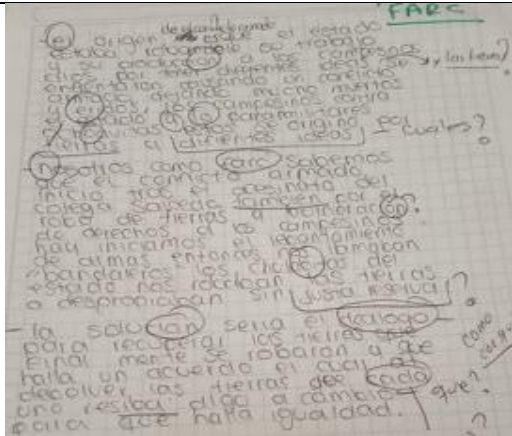 FARC
- el origen es que el estado
estaba robandole su trabajo
y su produccion a los campesinos
ellos por tener diferentes ideas se y las tierras?
enfrentaron causando un conflicto
armado dejando mucho muertos
y ellos, los campesinos contra
estado, o paramilitares
se origino por
tierras y diferentes ideas cuales?
- Nosotros como farc sabemos
que el conflicto armado
inicia tras el asesinato del
colega Salceda tambien por el
robo de tierras a
de derechos a los campesinos
hay iniciamos el levantamiento
de armas entonces nos llamaban
"bandaleros" los del
estado nos robaban las tierras
o despropiaban sin justa ?
- la solucion seria el dialogo
para recuperar las tierras que
final mente se robaron y que como
halla un acuerdo el cual al
decolver las tierras que cada que?
uno resiba algo a cambio
para que halla igualdad. ?